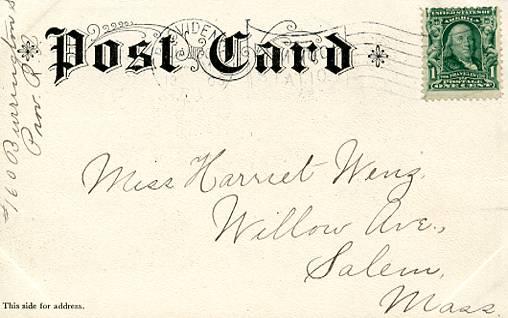 Post Card
UNITED STATES OF AMERICA
1 1
FRANKLIN
POSTAGE
ONE CENT
Miss Harriet Weng.
Willow Ave.,
Salem,
Mass.
This side for address.
#160 Burrington S
Prov. R.